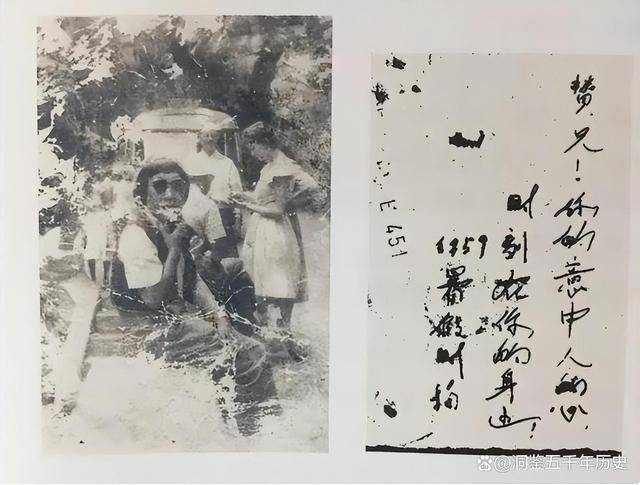 兄！你的意中人的心
时刻在你的身边！
1959暑假时拍
E 451
@洞鉴五千年历史